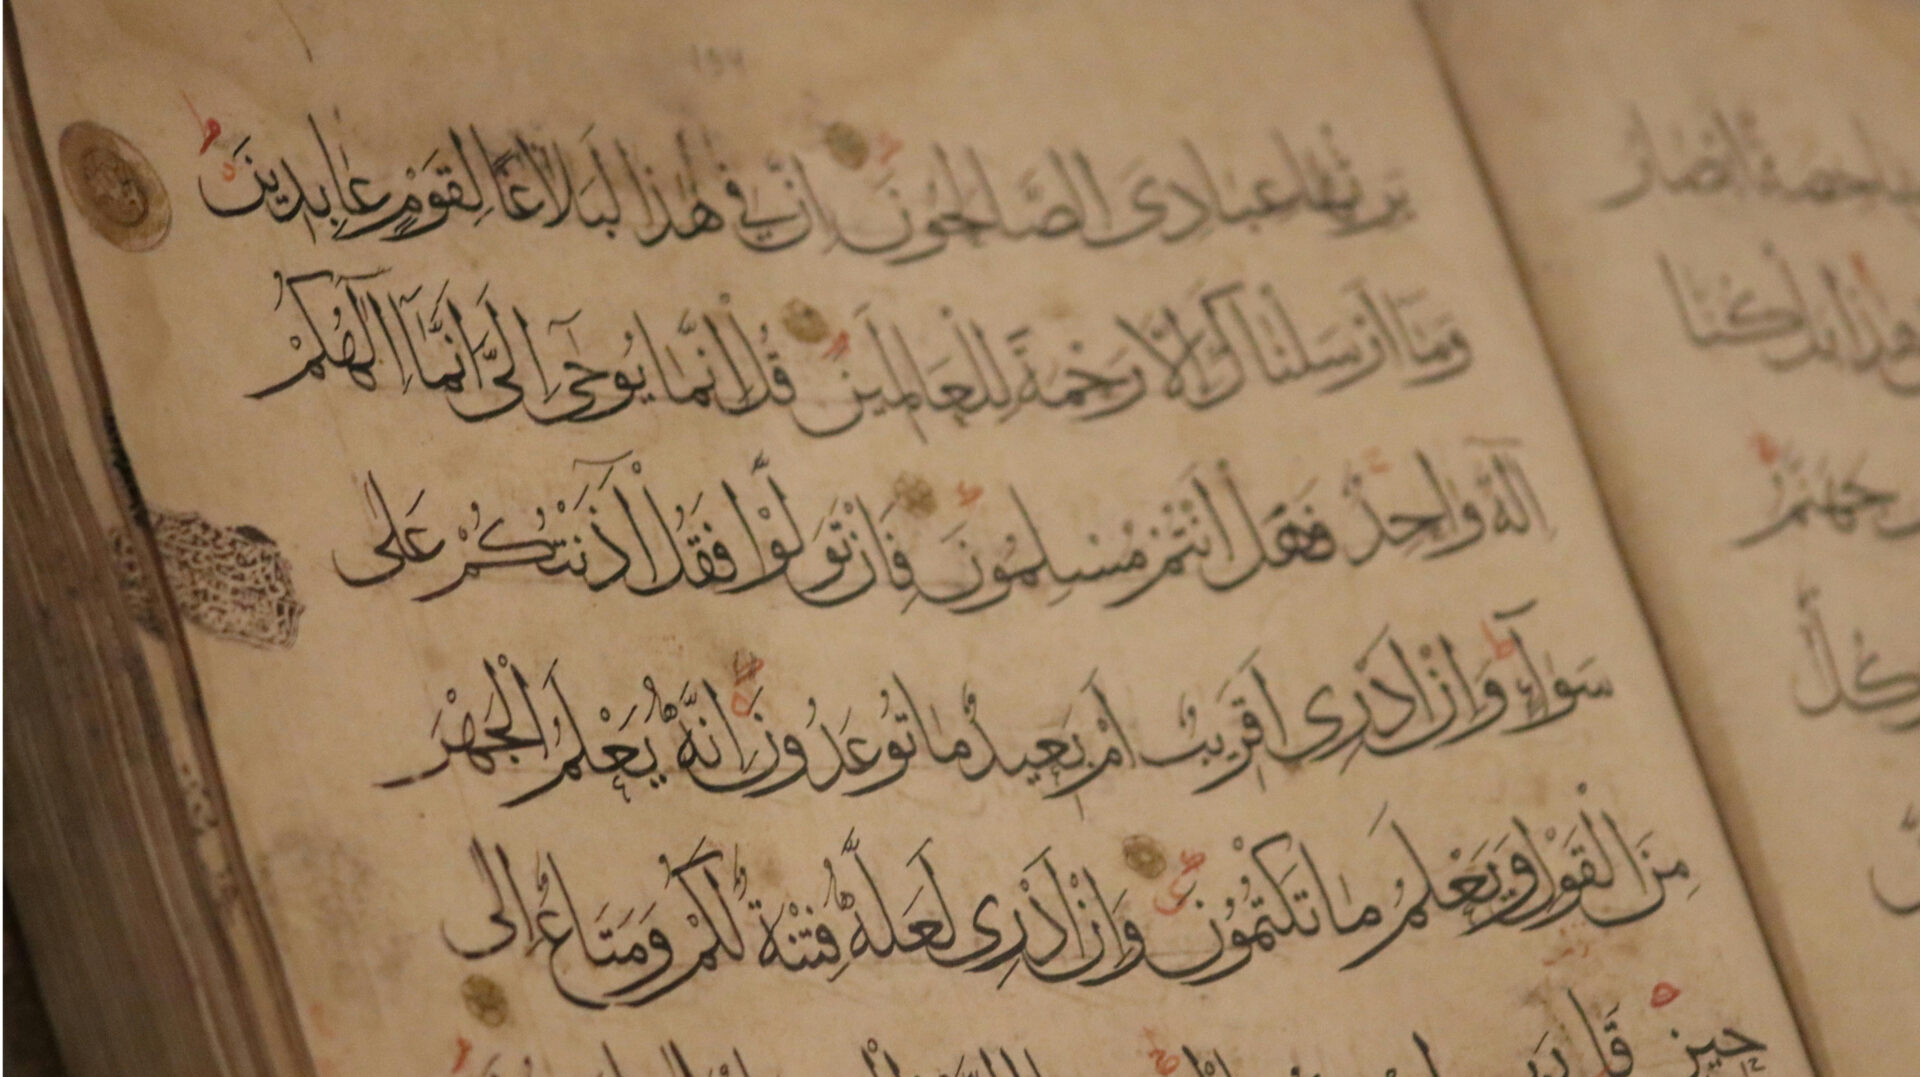 يَرِثُهَا عِبَادِىَ الصَّالِحُونَ اِنَّ فِي هٰذَا لَبَلَاغًا لِقَوْمٍ عَابِدِينَ
وَمَٓا اَرْسَلْنَاكَ اِلَّا رَحْمَةً لِلْعَالَمِينَ قُلْ اِنَّمَا يُوحٰٓى اِلَىَّ اَنَّمَٓا اِلٰهُكُمْ
اِلٰهٌ وَاحِدٌ فَهَلْ اَنْتُمْ مُسْلِمُونَ فَاِنْ تَوَلَّوْا فَقُلْ اٰذَنْتُكُمْ عَلٰى
سَوَٓاءٍ وَاِنْ اَدْرِى اَقَرِيبٌ اَمْ بَعِيدٌ مَا تُوعَدُونَ اِنَّهُ يَعْلَمُ الْجَهْرَ
مِنَ الْقَوْلِ وَيَعْلَمُ مَا تَكْتُمُونَ وَاِنْ اَدْرِى لَعَلَّهُ فِتْنَةٌ لَكُمْ وَمَتَاعٌ اِلٰى
حِينٍ
انصار
كنا
جهنم
كل